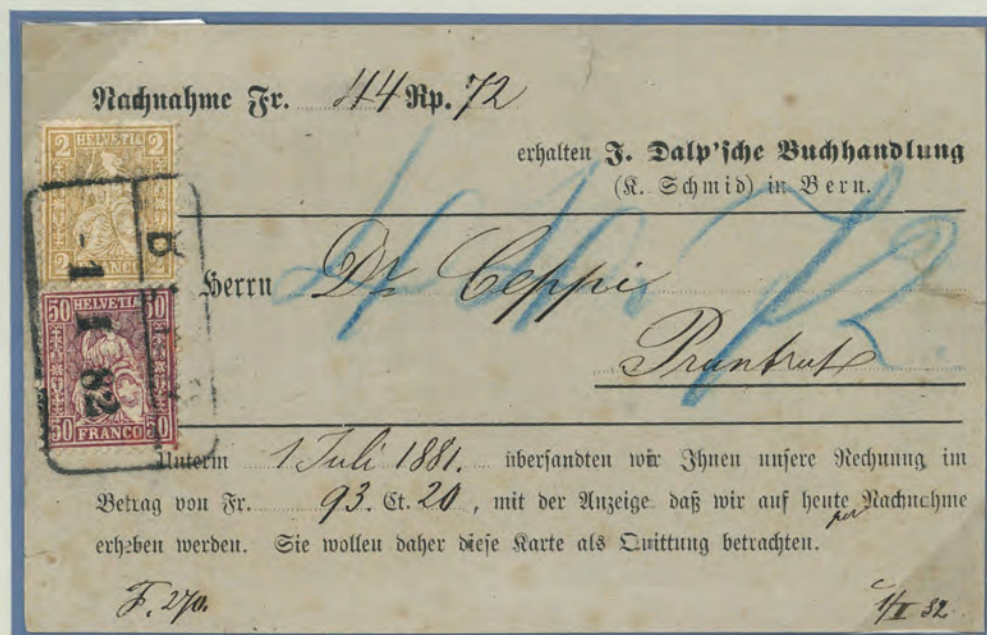 Nachnahme Fr. 44 Rp. 72
erhalten J. Dalp'sche Buchhandlung
(K. Schmid) in Bern.
2 HELVETIA 2
2 FRANCO 2
-1 I 82
50 HELVETIA 50
50 FRANCO 50
44 72
Herrn Dr Ceppi
Pruntrut
Unterm 1 Juli 1881. übersandten wir Ihnen unsere Rechnung im
Betrag von Fr. 93. Ct. 20, mit der Anzeige daß wir auf heute per Nachnahme
erheben werden. Sie wollen daher diese Karte als Quittung betrachten.
F. 270.
1/II 82